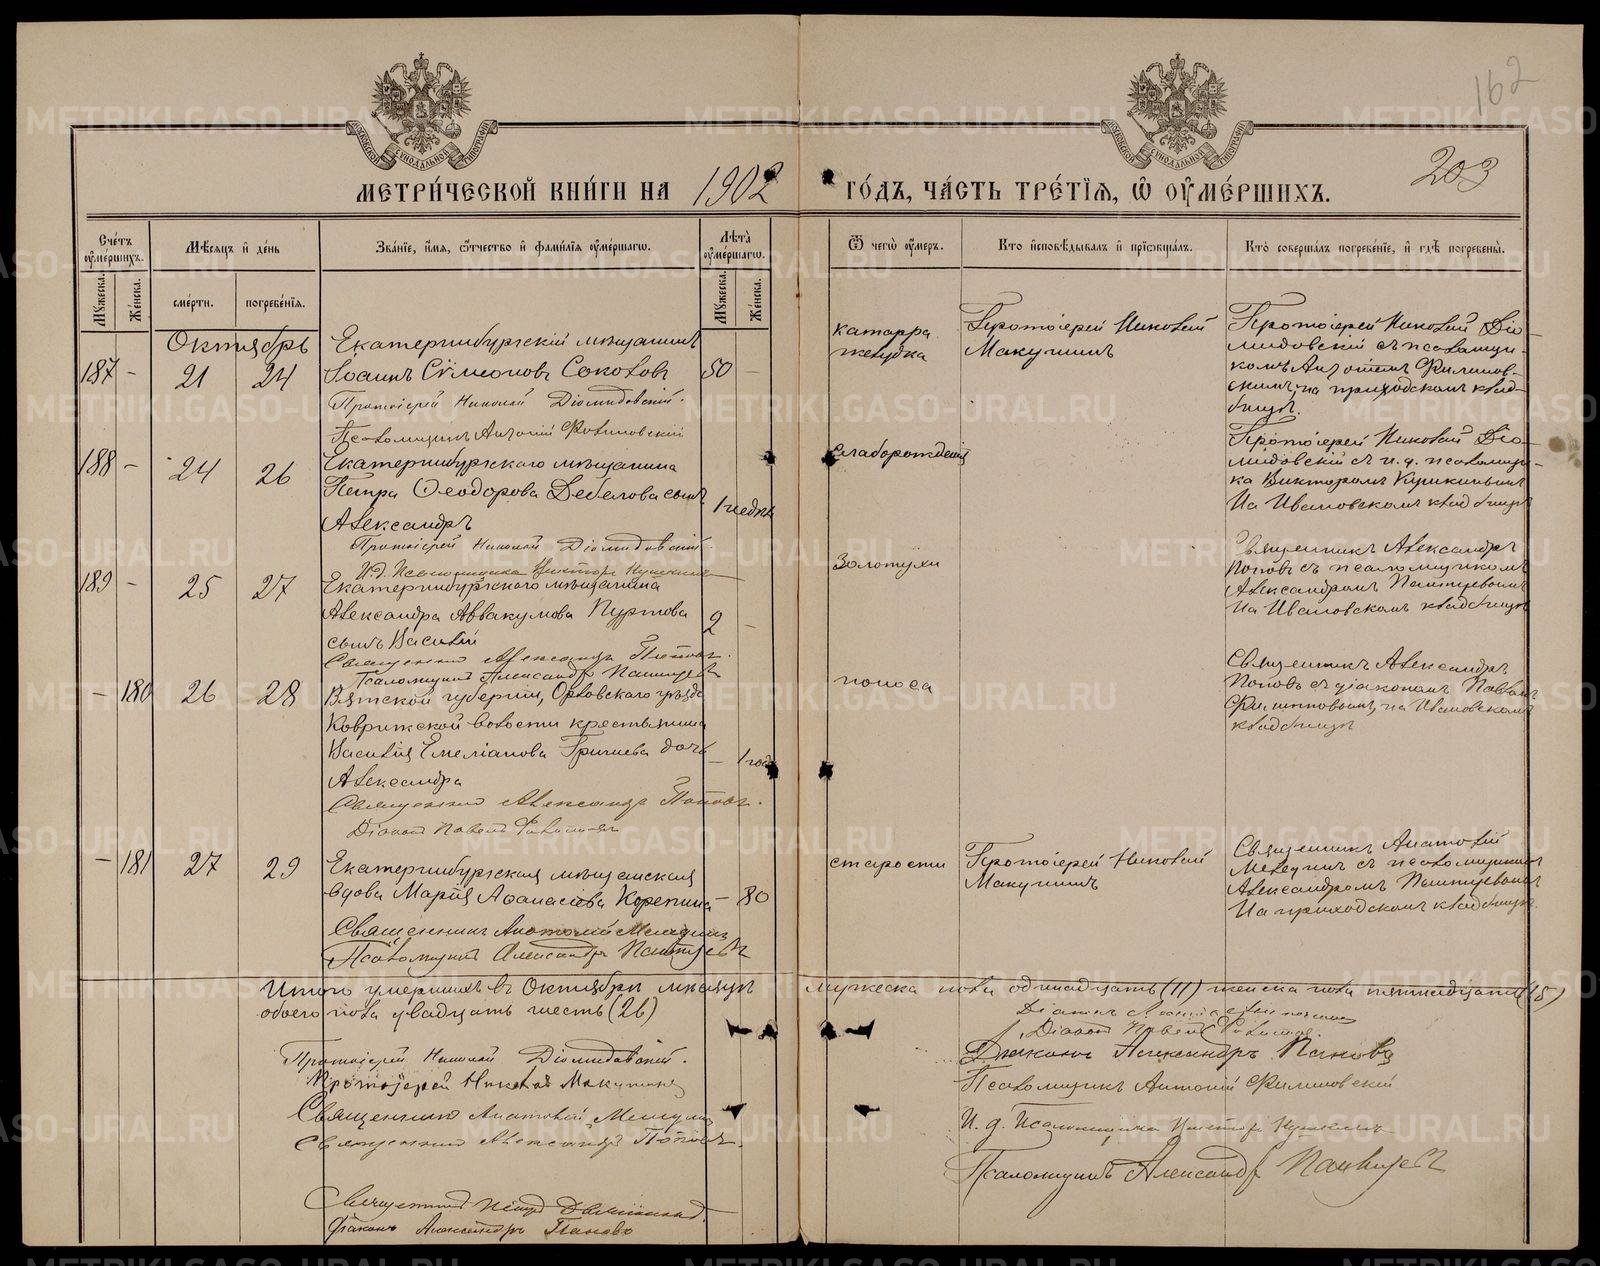 162
203
МЕТРИ́ЧЕСКОЙ КНИ́ГИ НА 1902 ГО́ДЪ, ЧА́СТЬ ТРЕ́ТІѦ, Ѡ ОУ҆МЕ́РШИХЪ.
МОСКОВСКОЙ СѴНОДАЛЬНОЙ ТИПОГРАФІИ
МОСКОВСКОЙ СѴНОДАЛЬНОЙ ТИПОГРАФІИ
Сче́тъ оу҆ме́ршихъ.
Мꙋ́жеска.
Же́нска.
Мѣ́сяцъ и҆ де́нь
сме́рти.
погребе́нїѧ.
Зва́нїе, и҆́мѧ, ѻ҆́тчество и҆ фами́лїѧ оу҆ме́ршагѡ.
Лѣ́та оу҆ме́ршагѡ.
Мꙋ́жеска.
Же́нска.
Ѿ чегѡ̀ оу҆́меръ.
Кто̀ и҆сповѣ́дывалъ и҆ прїѡбща́лъ.
Кто̀ соверша́лъ погребе́нїе, и҆ гдѣ̀ погребены̀.
Октябрь
187 – 21 24
Екатеринбургскій мѣщанинъ
Іоаннъ Сѵмеоновъ Соколовъ
50 –
Протоіерей Николай Діомидовскій.
Псаломщикъ Антоній Филиновскій
катарра
желудка
Протоіерей Николай
Макушинъ
Протоіерей Николай Діо-
мидовскій съ псаломщи-
комъ Антоніемъ Филинов-
скимъ, на приходскомъ клад-
бищѣ.
188 – 24 26
Екатеринбургскаго мѣщанина
Петра Ѳеодорова Дебелова сынъ
Александръ
1 недѣл
Протоіерей Николай Діомидовскій.
И.д. Псаломщика Викторъ
слаборожденія
Протоіерей Николай Діо-
мидовскій съ и. д. псаломщи-
ка Викторомъ
На Ивановскомъ кладбищѣ
189 – 25 27
Екатеринбургскаго мѣщанина
Александра Аввакумова Пуртова
сынъ Василій
2 –
Священникъ Александръ Поповъ.
Псаломщикъ Александръ
Золотухи
Священникъ Александръ
Поповъ съ псаломщикомъ
Александромъ
На Ивановскомъ кладбищѣ
– 180 26 28
Вятской губерніи, Орловскаго уѣзда
Коврижской волости крестьянина
Василія Емеліанова дочь
Александра
– 1 год
Священникъ Александръ Поповъ.
Діаконъ Павелъ
поноса
Священникъ Александръ
Поповъ съ діакономъ Павломъ
на Ивановскомъ
кладбищѣ
– 181 27 29
Екатеринбургская мѣщанская
вдова Марія Аѳанасіева Корепина
– 80
Священникъ Анатолій
Псаломщикъ Александръ
старости
Протоіерей Николай
Макушинъ
Священникъ Анатолій
съ псаломщикомъ
Александромъ
На приходскомъ кладбищѣ.
Итого умершихъ въ Октябрѣ мѣсяцѣ мужеска пола одинадцать (11) женска пола пятнадцать (15)
обоего пола двадцать шесть (26)
Протоіерей Николай Діомидовскій.
Протоіерей Николай Макушинъ
Священникъ Анатолій
Священникъ Александръ Поповъ.
Священникъ Петръ
Діаконъ Александръ Пановъ
Діаконъ Павелъ
Діаконъ Александръ Пановъ
Псаломщикъ Антоній Филиновскій
И. д. Псаломщика Викторъ
Псаломщикъ Александръ
METRIKI.GASO-URAL.RU